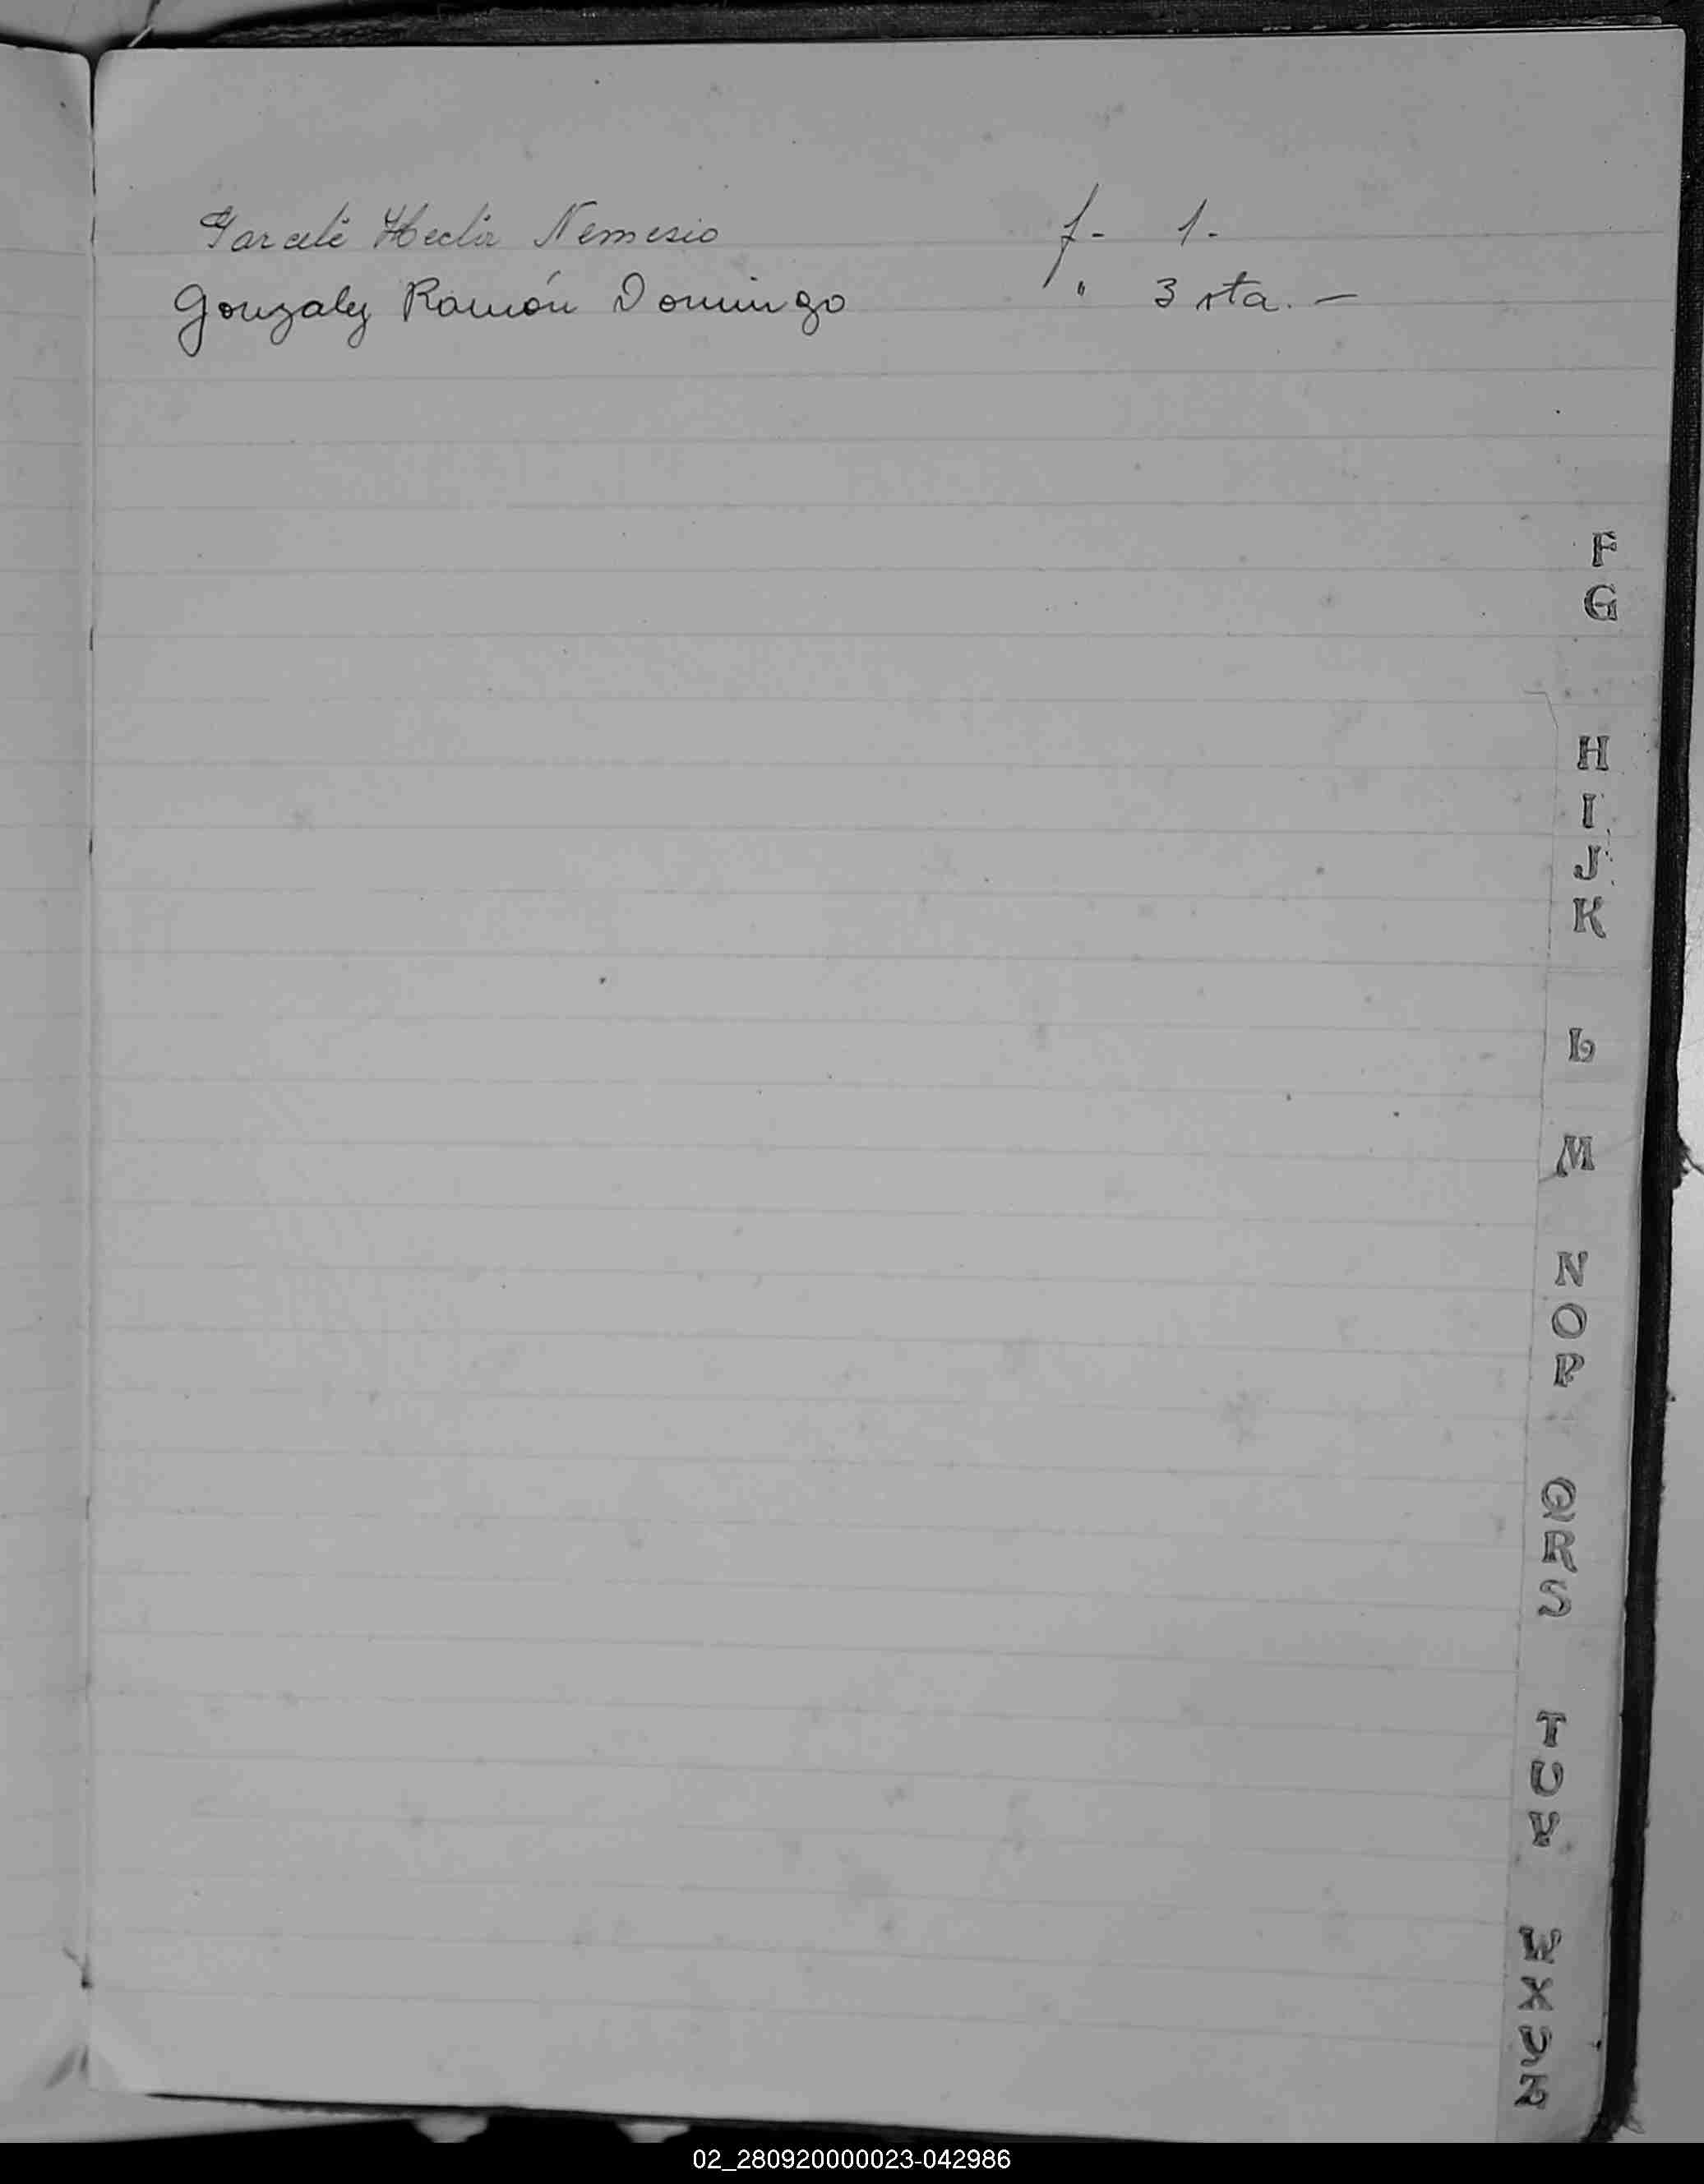 Garceté Hector Nemesio f- 1.-
Gonzalez Ramón Domingo " 3 vta. —
F
G
H
I
J
K
L
M
N
O
P
Q
R
S
T
U
V
W
X
Y
Z
02_280920000023-042986